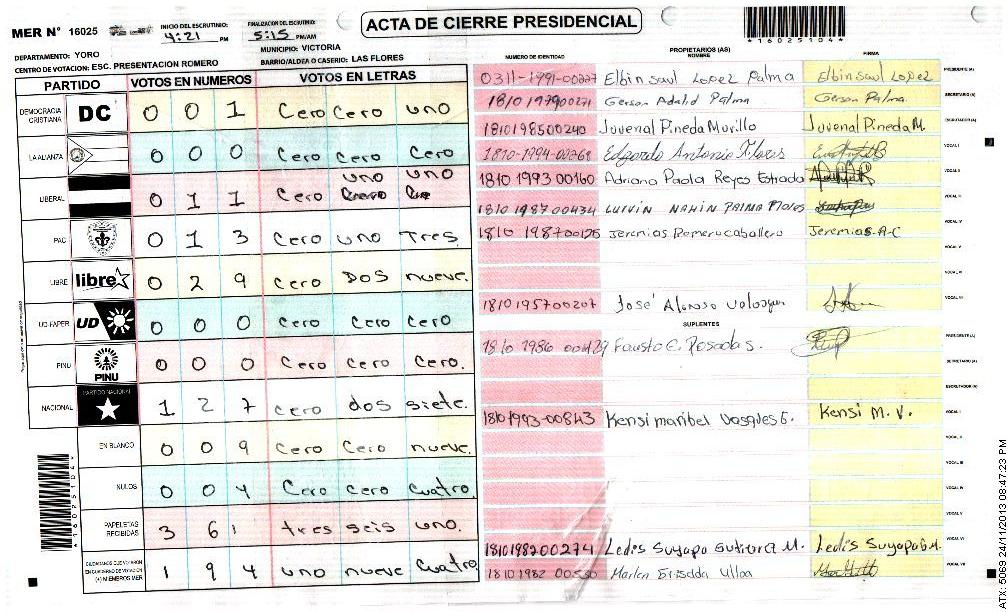 MER N° 16025
INICIO DEL ESCRUTINIO: 4:21 PM
FINALIZACION DEL ESCRUTINIO: 5:15 PM/AM
ACTA DE CIERRE PRESIDENCIAL
*16025104*
DEPARTAMENTO: YORO
MUNICIPIO: VICTORIA
CENTRO DE VOTACION: ESC. PRESENTACION ROMERO
BARRIO/ALDEA O CASERIO: LAS FLORES
PARTIDO VOTOS EN NUMEROS VOTOS EN LETRAS
DEMOCRACIA CRISTIANA DC 0 0 1 Cero Cero uno
LA ALIANZA 0 0 0 Cero Cero Cero
LIBERAL 0 1 1 Cero uno uno
PAC 0 1 3 Cero uno Tres
LIBRE libre 0 2 9 Cero DOS nueve.
UD-FAPER UD 0 0 0 Cero Cero Cero
PINU PINU 0 0 0 Cero Cero Cero.
NACIONAL PARTIDO NACIONAL 1 2 7 cero dos siete.
EN BLANCO 0 0 9 Cero Cero nueve.
NULOS 0 0 4 Cero Cero Cuatro
PAPELETAS RECIBIDAS 3 6 1 tres seis uno.
CIUDADANOS QUE VOTARON EN CUADERNO DE VOTACION (+) MIEMBROS MER 1 9 4 uno nueve Cuatro
*16025104*
PROPIETARIOS (AS)
NUMERO DE IDENTIDAD NOMBRE FIRMA
0311-1991-00227 Elbin saul Lopez Palma Elbin saul Lopez PRESIDENTE (A)
1810197900271 Gerson Adalid Palma Gerson Palma. SECRETARIO (A)
1810198500240 Juvenal Pineda Murillo Juvenal Pineda M. ESCRUTADOR (A)
1810-1994-00268 Edgardo Antonio Flores VOCAL I
1810 1993 00160 Adriana Paola Reyes Estrada VOCAL II
1810 1987 00434 LURVIN NAHIN PALMA Flores VOCAL III
1810 198700175 Jeremias Romero caballero Jeremias.A-C VOCAL IV
VOCAL V
VOCAL VI
1810195700207 José Alonso VOCAL VII
SUPLENTES
1810 1986 00429 Fausto C. Posadas. PRESIDENTE (A)
SECRETARIO (A)
ESCRUTADOR (A)
1810-1993-00843 Kensi maribel Vasques E. Kensi M. V. VOCAL I
VOCAL II
VOCAL III
VOCAL IV
VOCAL V
1810198200274 Ledis Suyapa Gutierra M. Ledis Suyapa G.M. VOCAL VI
1810 1982 00530 Marlen Ulloa VOCAL VII
ATX: 5069 24/11/2013 08:47:23 PM